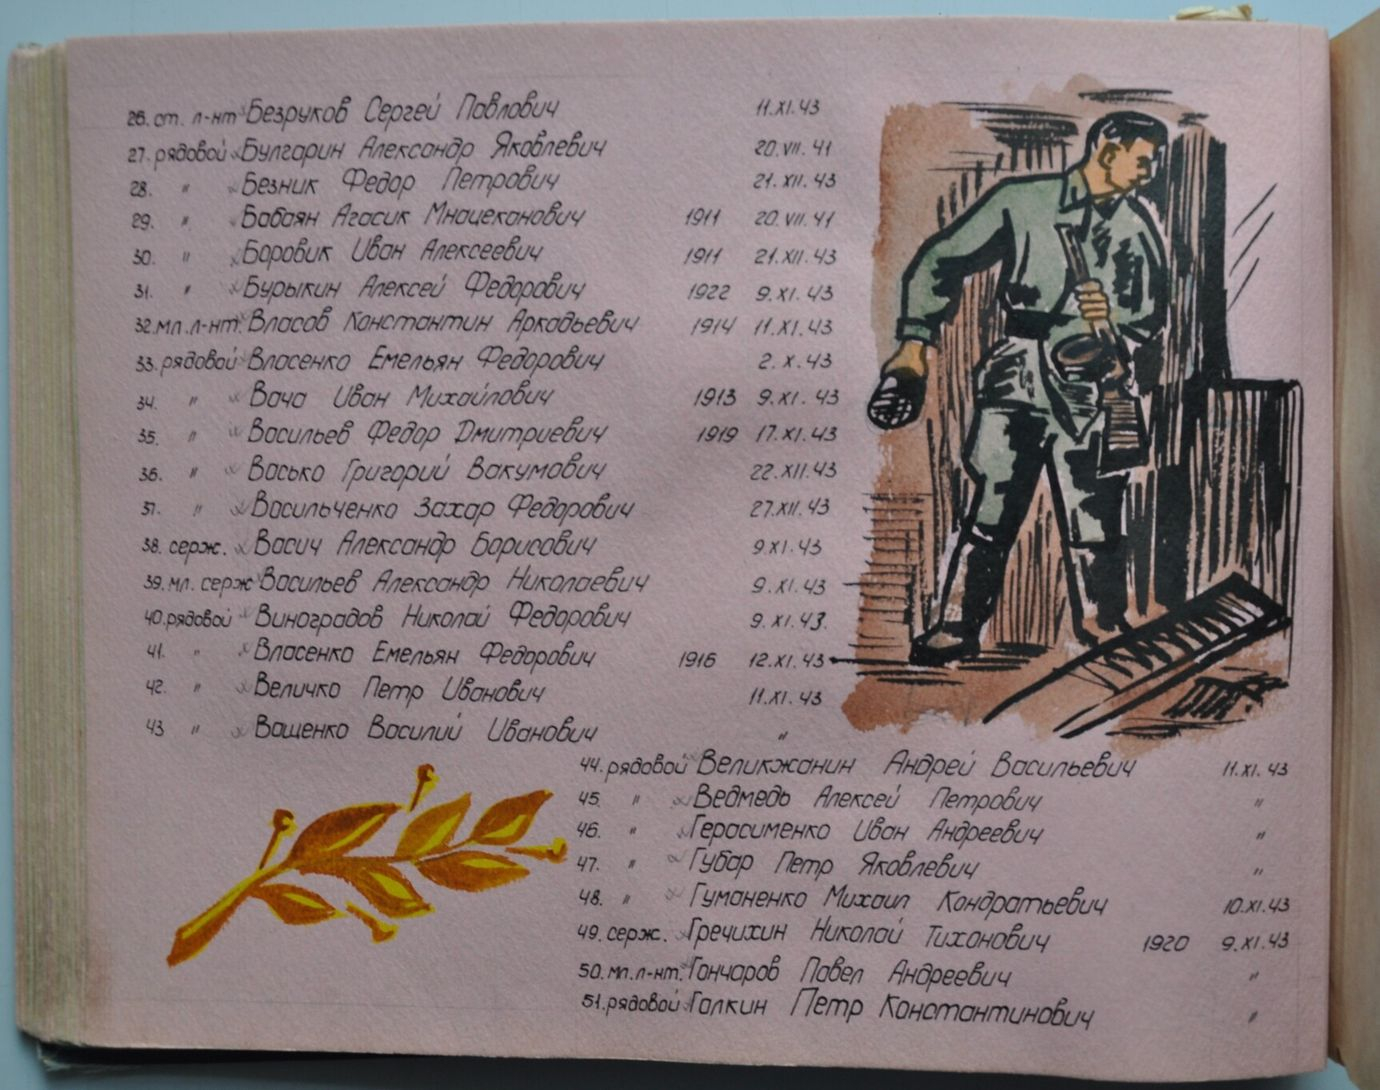 26. ст. л-нт Безруков Сергей Павлович 11.XI.43
27. рядовой Булгарин Александр Яковлевич 20.VII.41
28. " Безник Федор Петрович 21.XII.43
29. " Бабаян Агасик Мнацеканович 1911 20.VII.41
30. " Боровик Иван Алексеевич 1911 21.XII.43
31. " Бурыкин Алексей Федорович 1922 9.XI.43
32. мл. л-нт. Власов Константин Аркадьевич 1914 11.XI.43
33. рядовой Власенко Емельян Федорович 2.X.43
34. " Вача Иван Михайлович 1913 9.XI.43
35. " Васильев Федор Дмитриевич 1919 17.XI.43
36. " Васько Григорий Вакумович 22.XII.43
37. " Васильченко Захар Федорович 27.XII.43
38. серж. Васич Александр Борисович 9.XI.43
39. мл. серж Васильев Александр Николаевич 9.XI.43
40. рядовой Виноградов Николай Федорович 9.XI.43.
41. " Власенко Емельян Федорович 1916 12.XI.43
42. " Величко Петр Иванович 11.XI.43
43 " Ващенко Василий Иванович "
44. рядовой Великжанин Андрей Васильевич 11.XI.43
45. " Ведмедь Алексей Петрович "
46. " Герасименко Иван Андреевич "
47. " Губар Петр Яковлевич "
48. " Гуманенко Михаил Кондратьевич 10.XI.43
49. серж. Гречихин Николай Тихонович 1920 9.XI.43
50. мл. л-нт. Гончаров Павел Андреевич "
51. рядовой Галкин Петр Константинович "